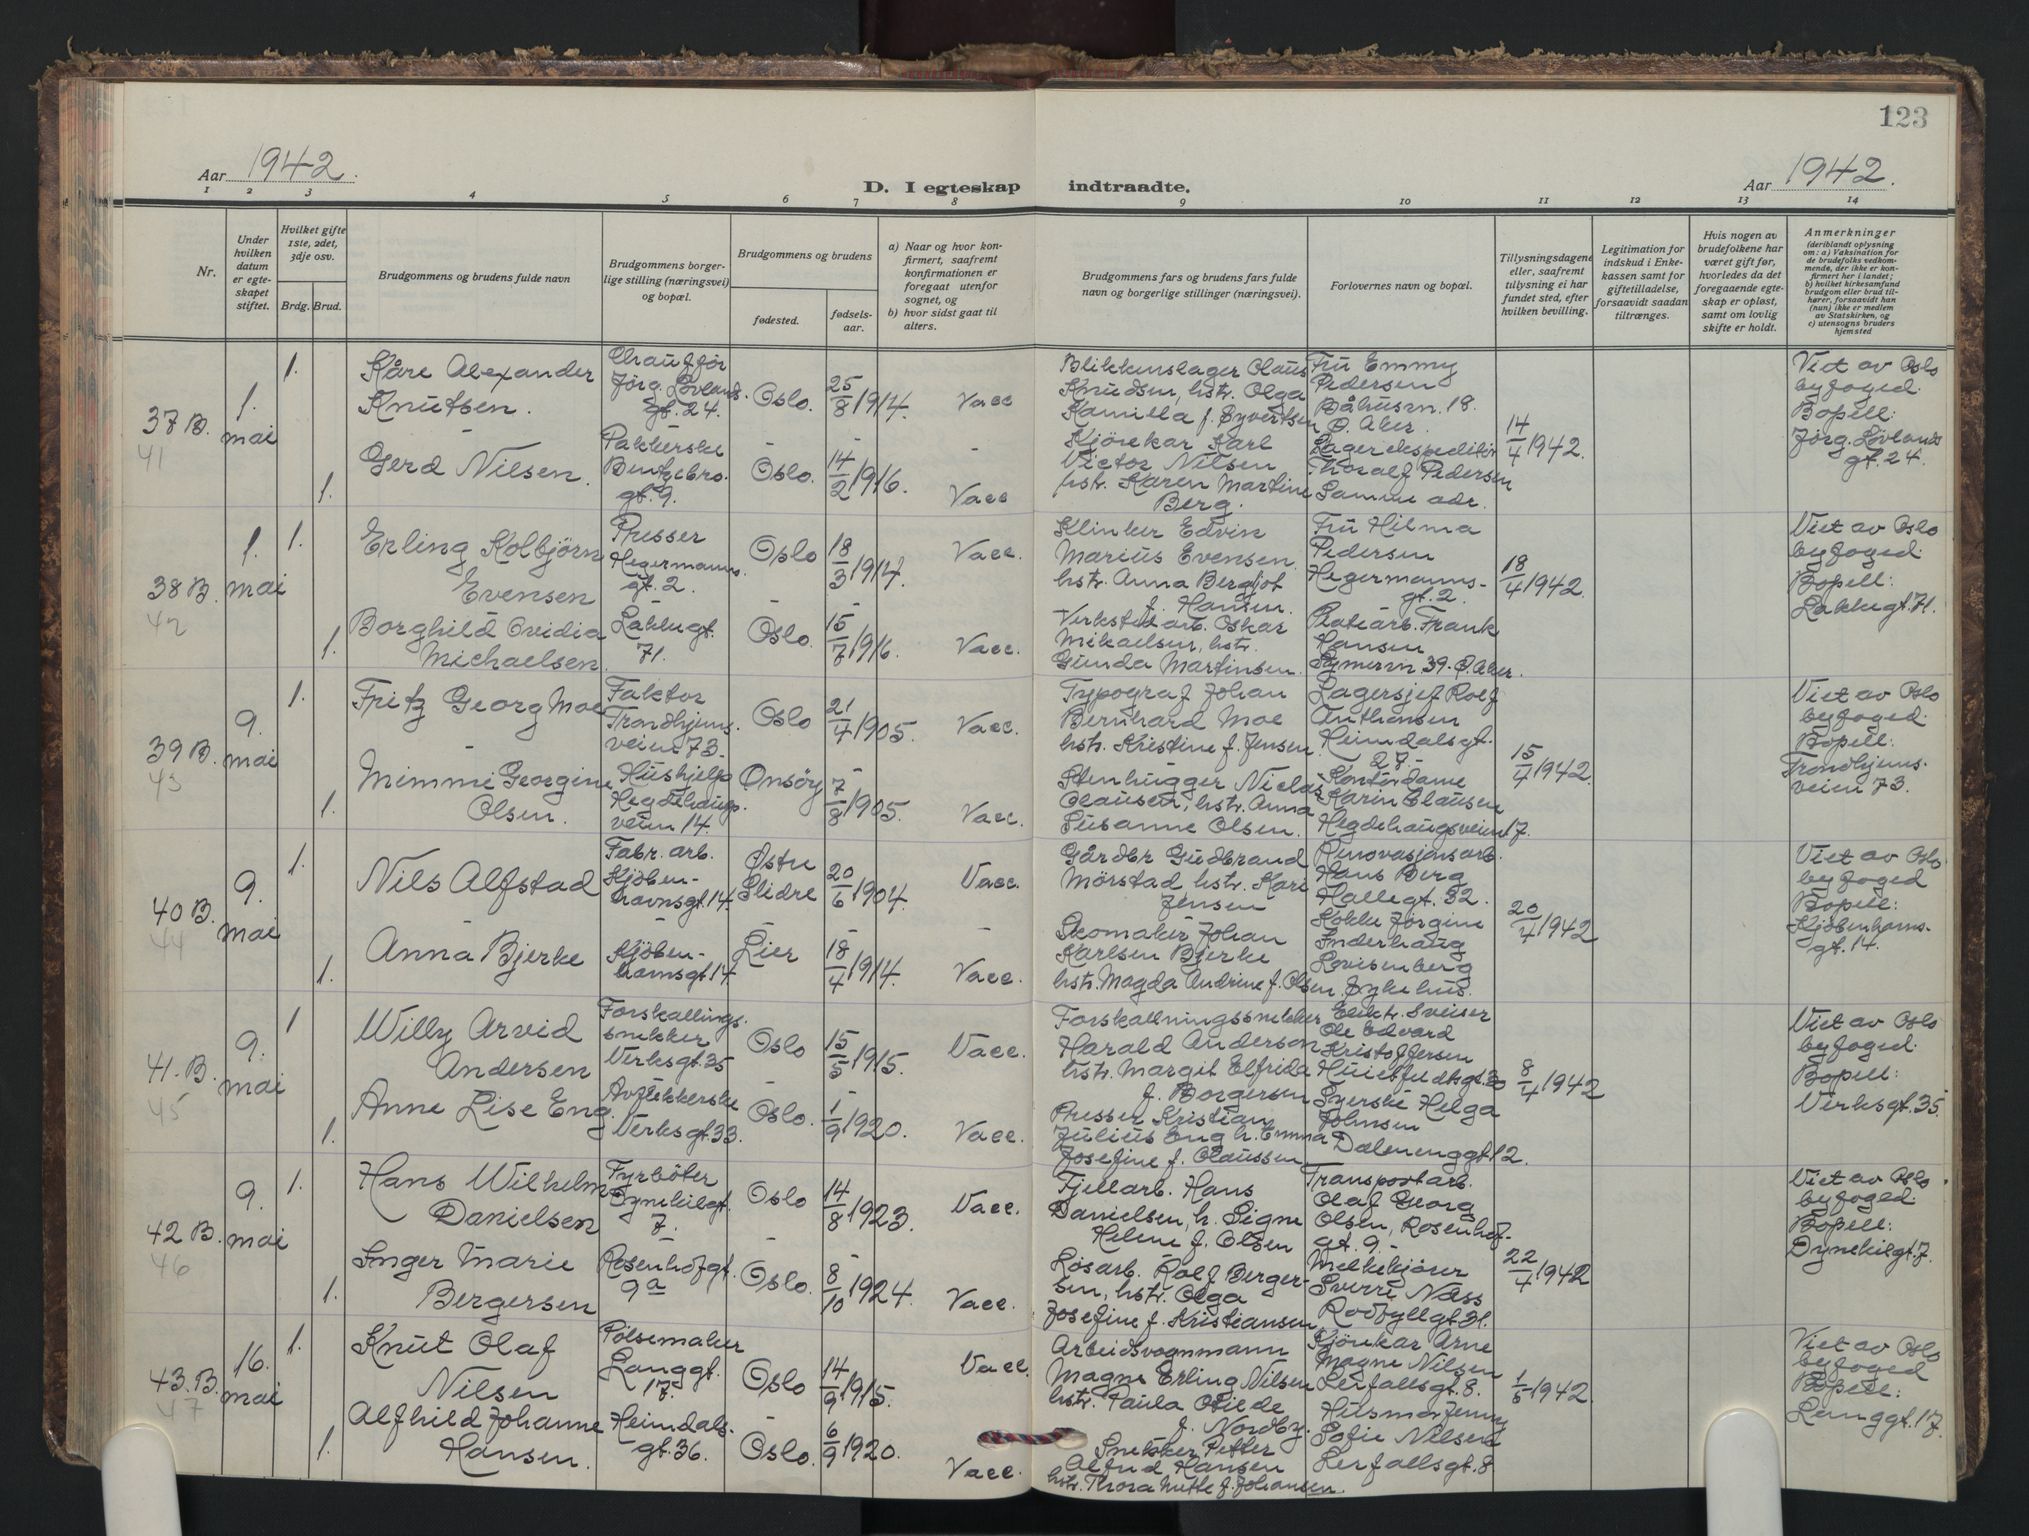 123
Aar 1942.
D. I egteskap indtraadte.
Aar 1942.
1 2 3 4 5 6 7 8 9 10 11 12 13 14
Nr.
Under hvilken datum er egteskapet stiftet.
Hvilket gifte 1ste, 2det, 3dje osv.
Brdg. Brud.
Brudgommens og brudens fulde navn
Brudgommens borgerlige stilling (næringsvei) og bopæl.
Brudgommens og brudens
fødested.
fødselsaar.
a) Naar og hvor konfirmert, saafremt konfirmationen er foregaat utenfor sognet, og
b) hvor sidst gaat til alters.
Brudgommens fars og brudens fars fulde navn og borgerlige stillinger (næringsvei).
Forlovernes navn og bopæl.
Tillysningsdagene eller, saafremt tillysning ei har fundet sted, efter hvilken bevilling.
Legitimation for indskud i Enkekassen samt for giftetilladelse, forsaavidt saadan tiltrænges.
Hvis nogen av brudefolkene har været gift før, hvorledes da det foregaaende egteskap er opløst, samt om lovlig skifte er holdt.
Anmerkninger
(deriblandt oplysning om: a) Vaksination for de brudefolks vedkommende, der ikke er konfirmert her i landet; b) hvilket kirkesamfund brudgom eller brud tilhører, forsaavidt han (hun) ikke er medlem av Statskirken, og c) utensogns bruders hjemsted
37 B.
41
1.
mai
1.
Kåre Alexander
Knutsen.
Chauffør
Jørg. Løvlands
gt. 24.
Oslo.
25/8 1914.
Vacc
Blikkenslager Olaus
Knudsen, hstr. Olga
Kamilla f. Syvertsen
Fru Emmy
Pedersen
Båhusvn. 18.
Ø. Aker.
14/4 1942.
Viet av Oslo
byfoged.
Bopell:
Jørg. Løvlands
gt. 24.
1.
Gerd Nilsen.
Pakkerske
Bentsebro.
gt. 9.
Oslo.
14/2 1916.
Vacc
Kjørekar Karl
Victor Nilsen
hstr. Karen Martine
Berg.
Lagerekspeditør
Thoralf Pedersen
Samme adr.
38 B.
42
1.
mai
1.
Erling Kolbjørn
Evensen
Presser
Hegermanns.
gt. 2.
Oslo
18/3 1914.
Vacc.
Klinker Edvin
Marius Evensen.
hstr. Anna Bergljot
f. Hansen.
Fru Hilma
Pedersen
Hegermanns-
gt. 2.
18/4 1942.
Viet av Oslo
byfoged.
Bopell:
Lakkegt. 71.
1.
Borghild Ovidia
Michaelsen.
Lakkegt.
71.
Oslo
15/7 1916.
Vacc.
Verksted arb. Oskar
Mikaelsen, hstr.
Gunda Martinsen.
Platearb. Frank
Hansen
39. Ø. Aker.
39 B.
43
9.
mai
1.
Fritz Georg Moe
Faktor
Trondhjems.
veien 73.
Oslo
21/4 1905.
Vacc.
Typograf Johan
Bernhard Moe
hstr. Kristine f. Jensen
Lagersjef Rolf
Anthonsen
Heimdalsgt.
15/4 1942.
Viet av Oslo
byfoged.
Bopell:
Trondhjems.
veien 73.
1.
Mimmi Georgine
Olsen.
Hushjelp
Hegdehaugs.
veien 14.
Onsøy
7/8 1905.
Vacc.
Stenhugger Niclas
Olausen, hstr. Anna
Susanne Olsen.
Kontordame
Karin Clausen
Hegdehaugsveien 17.
40 B.
44
9.
mai
1.
Nils Alfstad
Fabr. arb.
Kjøben-
havnsgt. 14.
Østre
Slidre
20/6 1904.
Vacc.
Gårdbr Gudbrand
Mørstad hstr. Kari
Jensen
Renovasjonsarb.
Hans Berg
Hallegt. 32.
20/4 1942
Viet av Oslo
byfoged
Bopell:
Kjøbenhavns-
gt. 14.
1.
Anna Bjerke
Kjøben-
havnsgt. 14.
Lier
18/4 1914.
Vacc.
Skomaker Johan
Karlsen Bjerke
hstr. Magda Andrine f. Olsen.
Kokke Jørgine
Inderhaug
Lovisenberg
Sykehus.
41. B.
45
9.
mai
1
Willy Arvid
Andersen
Forskallings.
snekker
Verksgt. 35
Oslo
15/5 1915.
Vacc.
Forskallningssnekker
Harald Anderson
hstr. Margit Elfrida
f. Borgersen
Elektr. Sveiser
Ole Edvard
Kristoffersen
Huitfeldtsgt. 30
8/4 1942
Viet av Oslo
byfoged.
Bopell:
Verksgt. 35.
1.
Anne Lise Eng.
Avtrekkerske
Verksgt. 33.
Oslo.
1/9 1920.
Vacc.
Presser Kristian
Julius Eng h. Emma
Josefine f. Olaussen
Syerske Helga
Johnsen
Dælenenggt. 12.
42 B.
46
9.
mai
1.
Hans Wilhelm
Danielsen
Fyrbøter
Dynekilgt.
7.
Oslo
14/8 1923.
Vacc.
Fjellarb. Hans
Danielsen, h. Signe
Helene f. Olsen
Transportarb.
Olaf Georg
Olsen, Rosenhof-
gt. 9.
22/4 1942
Viet av Oslo
byfoged.
Bopell:
Dynekilgt. 7.
1.
Inger Marie
Bergersen
Rosenhofgt.
9 a
Oslo.
8/10 1924.
Vacc.
Løsarb. Rolf Berger-
sen, hstr. Olga
Josefine f. Kristiansen
Melkekjører
Sverre Næss
Rodfyllgt. 31.
43. B.
47
16.
mai
1.
Knut Olaf
Nilsen
Pølsemaker
Langgt.
17.
Oslo
14/9 1915.
Vacc.
Arbeidsvognmann
Magne Erling Nilsen
hstr. Paula Otilde
f. Nordby.
Kjørekar Arne
Magne Nilsen
Lerfallsgt. 8.
1/5 1942.
Viet av Oslo
byfoged
Bopell:
Langgt. 17.
1.
Alfhild Johanne
Hansen.
Heimdals.
gt. 36.
Oslo.
6/9 1920.
Vacc.
Snekker Petter
Alfred Hansen
hstr. Thora Mette f. Johansen.
Husmor Jenny
Sofie Nilsen
Lerfallsgt. 8